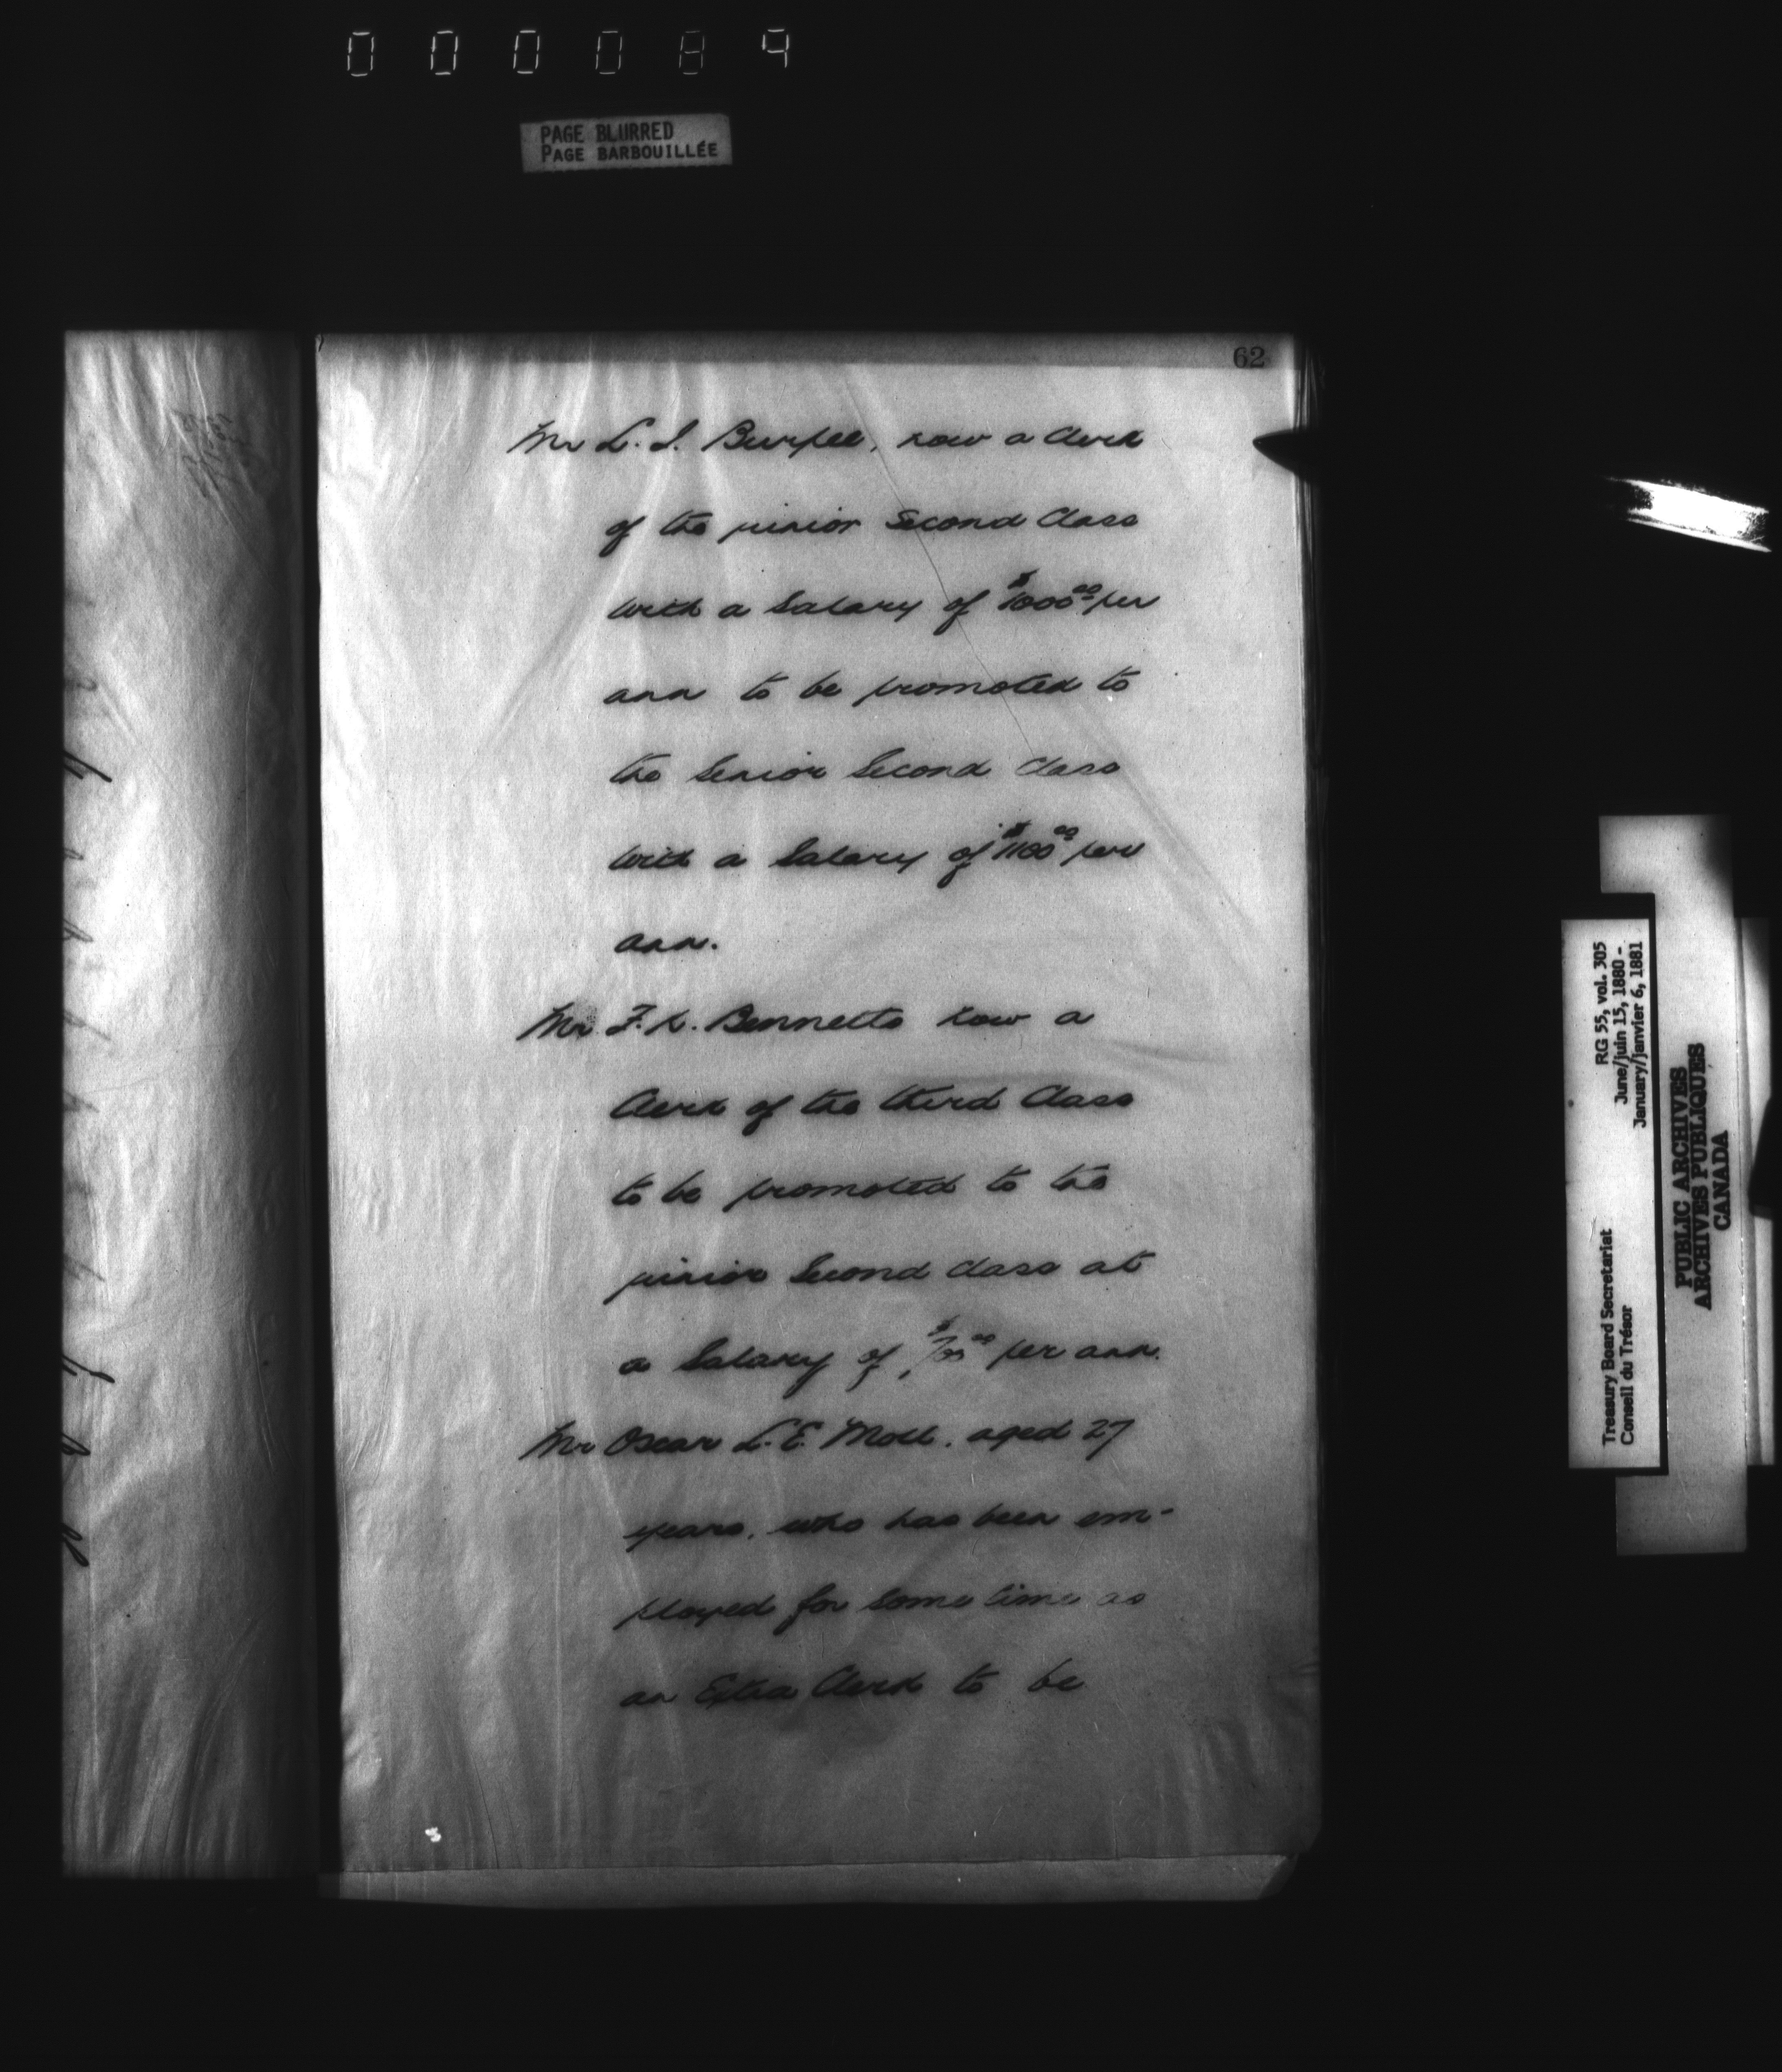 000089
PAGE BLURRED
PAGE BARBOUILLÉE
62
Mr L. I. Burpee, now a Clerk
of the junior Second Class
with a Salary of $1000.00 per
ann to be promoted to
the Senior Second Class
with a Salary of $1100.00 per
ann.
Mr F. K. Bennetts now a
Clerk of the third Class
to be promoted to the
junior Second Class at
a Salary of per ann.
Mr Oscar L. E. Moll, aged 27
years, who has been em-
ployed for some time as
an Extra Clerk to be
RG 55, vol. 305
June/juin 15, 1880 -
January/janvier 6, 1881
Treasury Board Secretariat
Conseil du Trésor
PUBLIC ARCHIVES
ARCHIVES PUBLIQUES
CANADA